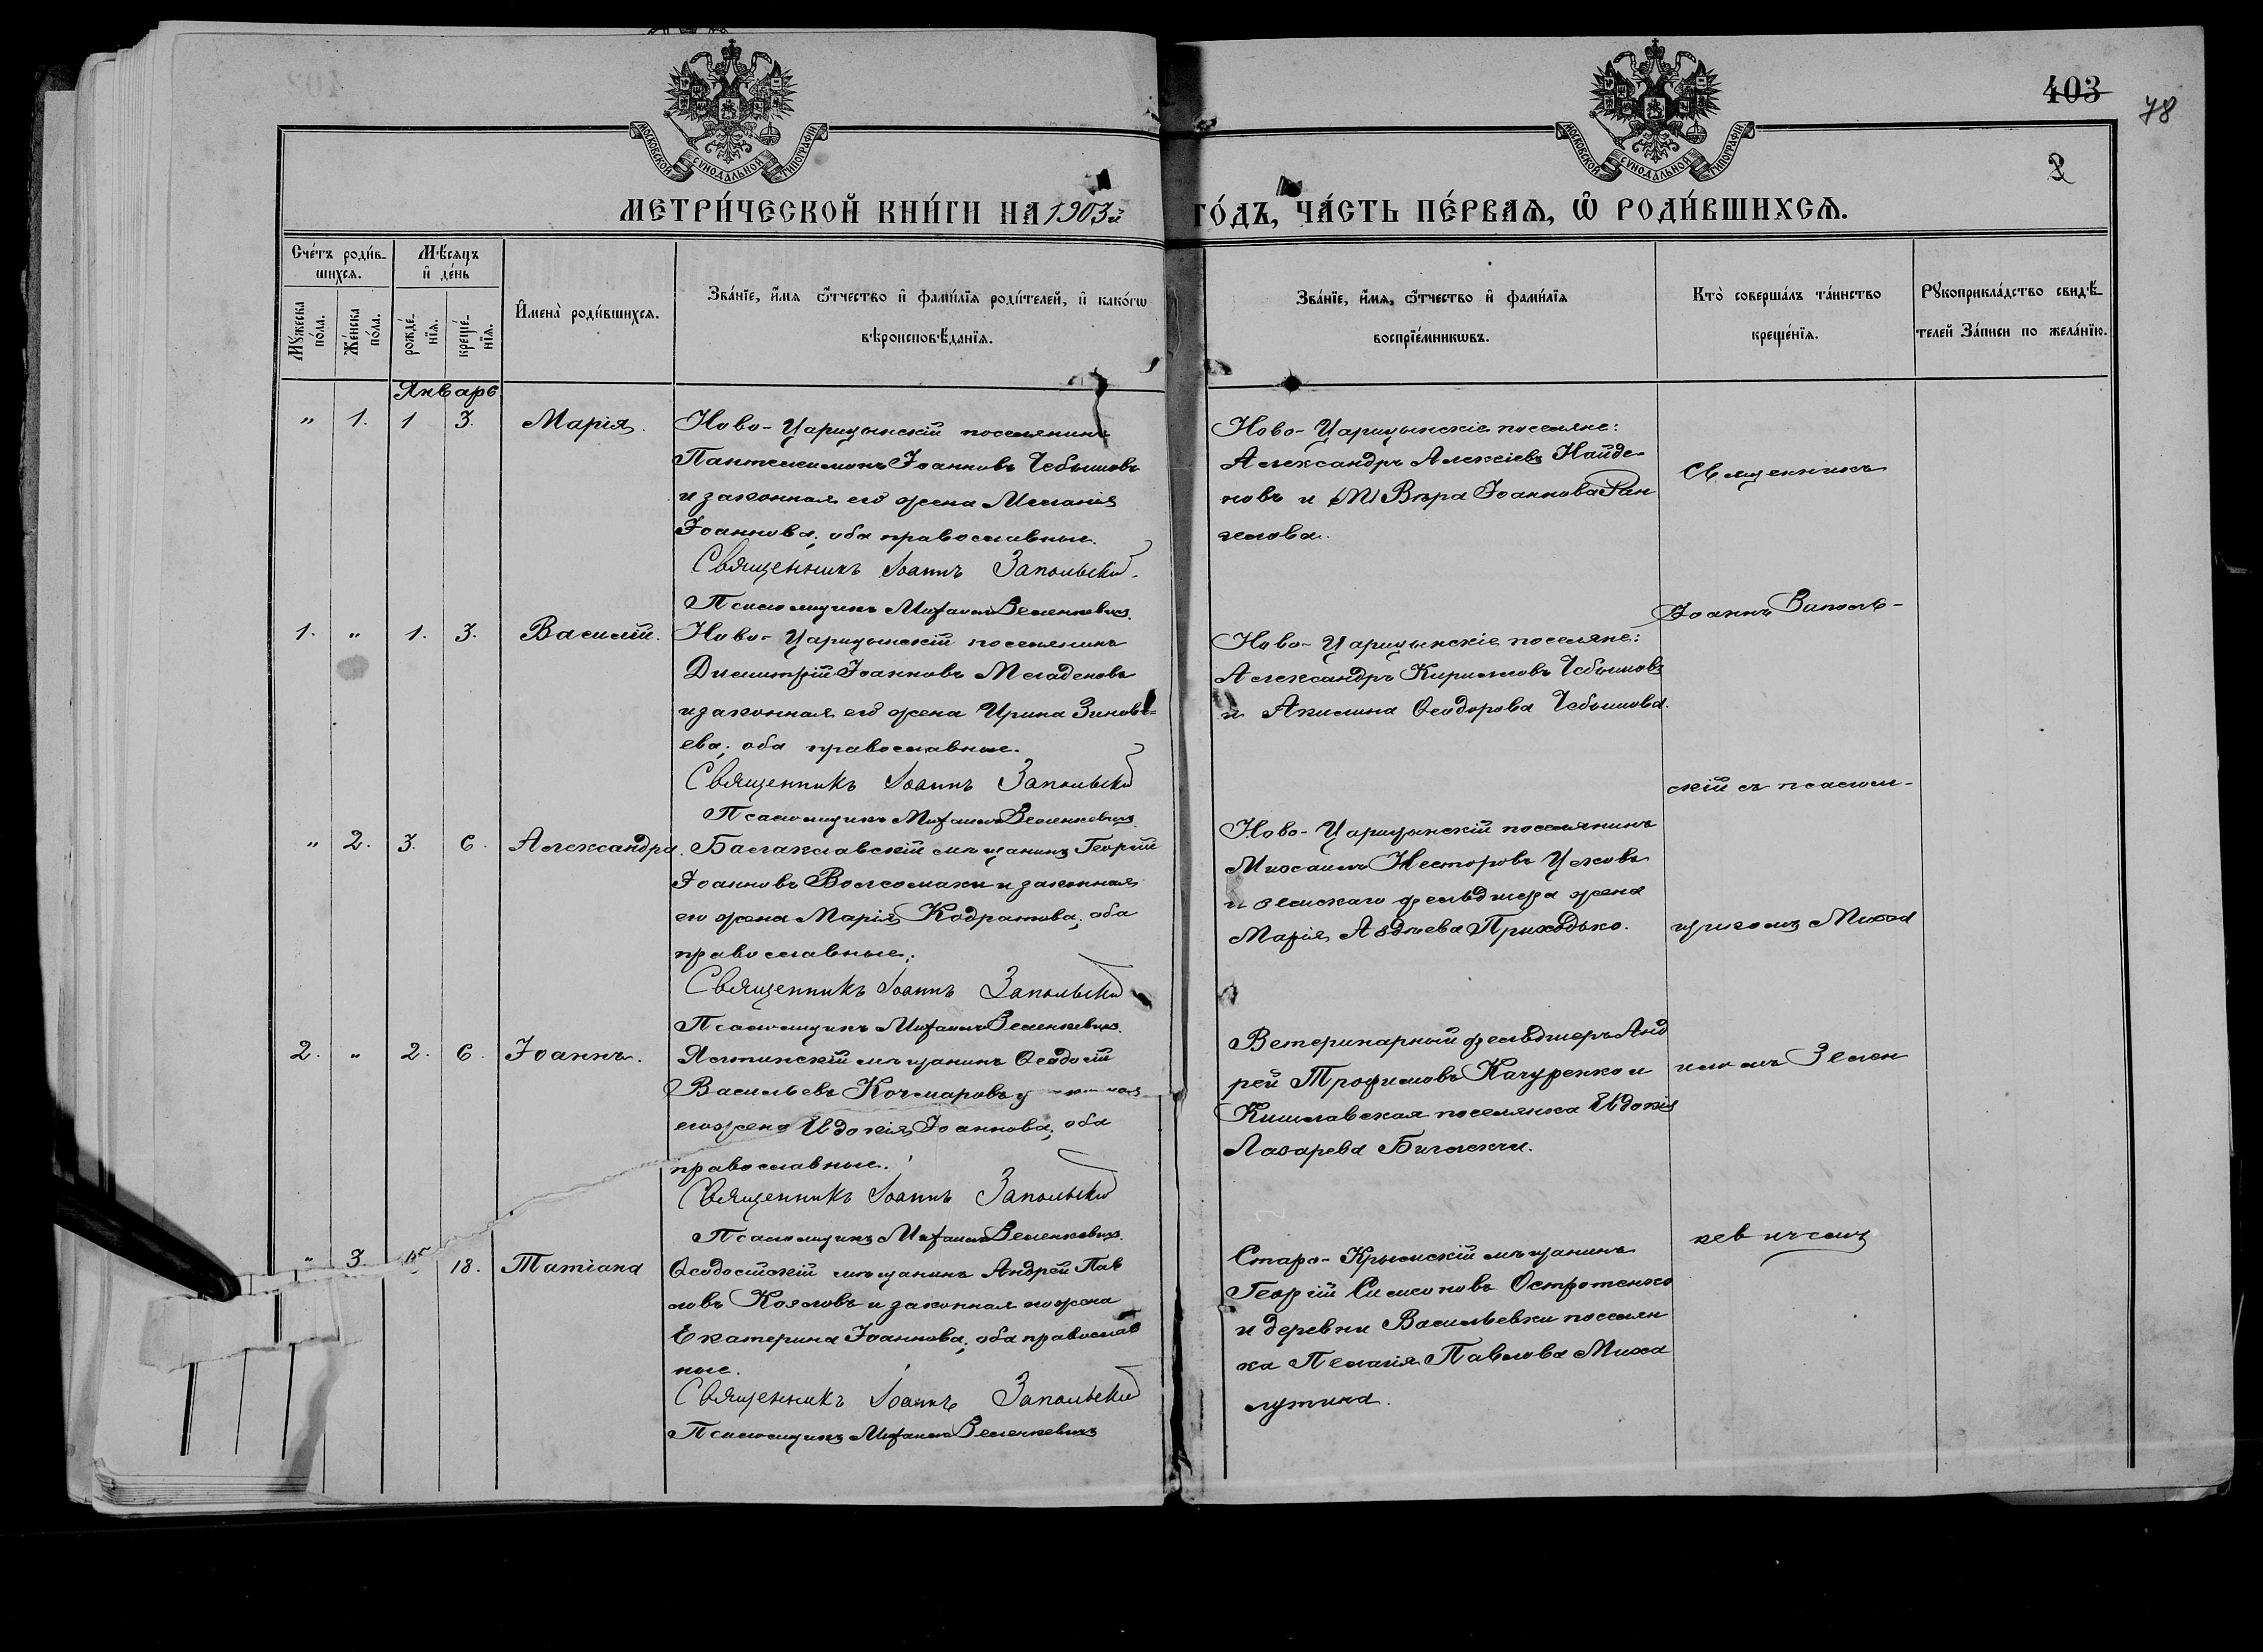 403
78
2
МОСКОВСКОЙ СУНОДАЛЬНОЙ ТИПОГРАФІИ
МОСКОВСКОЙ СУНОДАЛЬНОЙ ТИПОГРАФІИ
МЕТРИ́ЧЕСКОЙ КНИ́ГИ НА 1903й ГО́ДЪ, ЧА́СТЬ ПЕ́РВАѦ, Ѽ РОДИ́ВШИХСѦ.
Сче́тъ роди́в-
шихсѧ.
Мѣ́сѧцъ
и҆ де́нь
Мꙋ́жеска по́ла.
Же́нска по́ла.
рожде́-нїѧ.
креще́-нїѧ.
И҆мена̀ роди́вшихсѧ.
Зва́нїе, и҆́мѧ ѻ҆́тчество и҆ фами́лїѧ роди́телей, и҆ како́гѡ
вѣроисповѣ́данїѧ.
Зва́нїе, и҆́мѧ, ѻ҆́тчество и҆ фами́лїѧ
воспрїе́мникѡвъ.
Кто̀ соверша́лъ та́инство
креще́нїѧ.
Рꙋкоприкла́дство свидѣ́-
телей За́писи по жела́нїю.
Январь
" 1. 1 3. Марія.
Ново-Царицынскій поселянинъ
Пантелеимонъ Іоанновъ Чебышовъ
и законная его жена Меланія
Іоаннова; оба православные.
Священникъ Іоаннъ Запольскій
Псаломщикъ Михаилъ Зеленкевичъ.
Ново-Царицынскіе поселяне:
Александръ Алексіевъ Найде-
новъ и Вѣра Іоаннова Ран
гелова.
1. " 1. 3. Василій.
Ново-Царицынскій поселянинъ
Димитрій Іоанновъ Младеновъ
и законная его жена Ирина Зиновь-
ева; оба православные.
Священникъ Іоаннъ Запольскій
Псаломщикъ Михаилъ Зеленкевичъ.
Ново-Царицынскіе поселяне:
Александръ Кирилловъ Чебышовъ
и Акилина Ѳеодорова Чебышова.
" 2. 3. 6. Александра.
Балаклавскій мѣщанинъ Георгій
Іоанновъ Волсомаки и законная
его жена Марія Кодратова; оба
православные.
Священникъ Іоаннъ Запольскій
Псаломщикъ Михаилъ Зеленкевичъ.
Ново-Царицынскій поселянинъ
Михаилъ Несторовъ Узловъ
и земскаго фельдшера жена
Марія Авдіева Приходько.
2. " 2. 6. Іоаннъ.
Ялтинскій мѣщанинъ Ѳеодосій
Васильевъ Кочмаровъ
его жена Евдокія Іоаннова; оба
православные.
Священникъ Іоаннъ Запольскій
Псаломщикъ Михаилъ Зеленкевичъ.
Ветеринарный фельдшеръ Анд
рей Трофимовъ Качуренко и
Кишлавская поселянка Евдокія
Лазарева
" 3. 18. Татіана
Ѳеодосійскій мѣщанинъ Андрей Пав
ловъ Козловъ и законная его жена
Екатерина Іоаннова; оба православ
ные.
Священникъ Іоаннъ Запольскій
Псаломщикъ Михаилъ Зеленкевичъ
Старо-Крымскій мѣщанинъ
Георгій Симоновъ
и деревни Васильевки поселян
ка Пелагія Павлова Миха
лутина.
Священникъ
Іоаннъ Заполь-
скій съ псалом-
щикомъ Миха
иломъ Зелен
кевичемъ